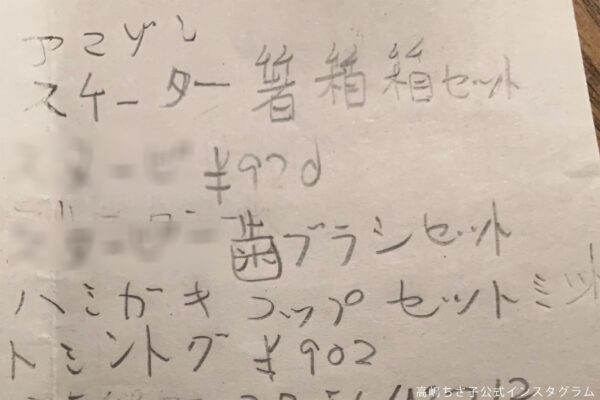 アマゾン
スケーター 箸 箱箱セット
¥970
歯ブラシセット
ハミガキ コップ セットミッ
トミントグ ¥902
高嶋ちさ子公式インスタグラム